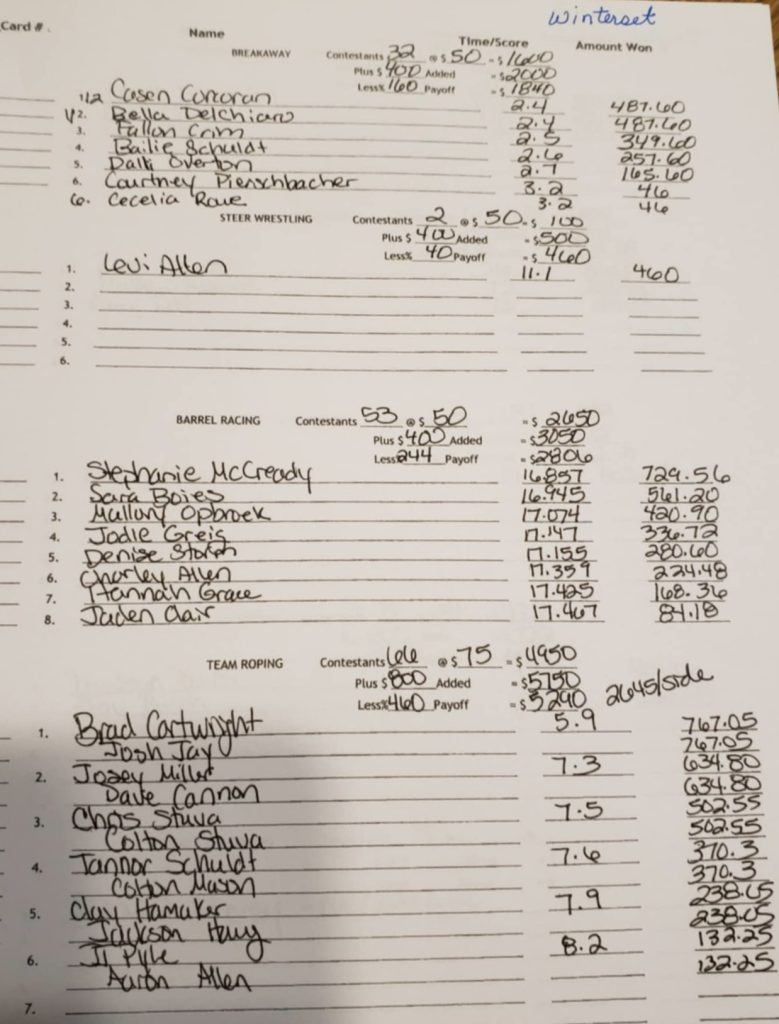 Winterset
Card #. Name Time/Score Amount Won
BREAKAWAY Contestants 32 @ $ 50 = $ 1600
Plus $ 400 Added = $ 2000
Less% 160 Payoff = $ 1840
1/2 Casen Corcoran 2.4 487.60
1/2. Bella Delchiaro 2.4 487.60
3. Fallon Crim 2.5 349.60
4. Bailie Schuldt 2.6 257.60
5. Dalli Overton 2.7 165.60
6. Courtney Pierschbacher 3.2 46
6. Cecelia Rowe 3.2 46
STEER WRESTLING Contestants 2 @ $ 50 = $ 100
Plus $ 400 Added = $ 500
Less% 40 Payoff = $ 460
1. Levi Allen 11.1 460
2.
3.
4.
5.
6.
BARREL RACING Contestants 53 @ $ 50 = $ 2650
Plus $ 400 Added = $ 3050
Less 244 Payoff = $ 2806
1. Stephanie McCready 16.857 729.56
2. Sara Boies 16.945 561.20
3. Mallory Opbroek 17.074 420.90
4. Jodie Greig 17.147 336.72
5. Denise Storjoh 17.155 280.60
6. Charley Allen 17.359 224.48
7. Hannah Grace 17.425 168.36
8. Jaden Clair 17.467 84.18
TEAM ROPING Contestants 66 @ $ 75 = $ 4950
Plus $ 800 Added = $ 5750
Less% 460 Payoff = $ 5290 2645/side
1. Brad Cartwright 5.9 767.05
Josh Jay 767.05
2. Jozey Miller 7.3 634.80
Dave Cannon 634.80
3. Chas Stuva 7.5 502.55
Colton Stuva 502.55
4. Tannor Schuldt 7.6 370.3
Colton Mason 370.3
5. Clay Hamaker 7.9 238.05
Jackson Haug 238.05
6. JJ Pyle 8.2 132.25
Aaron Allen 132.25
7.